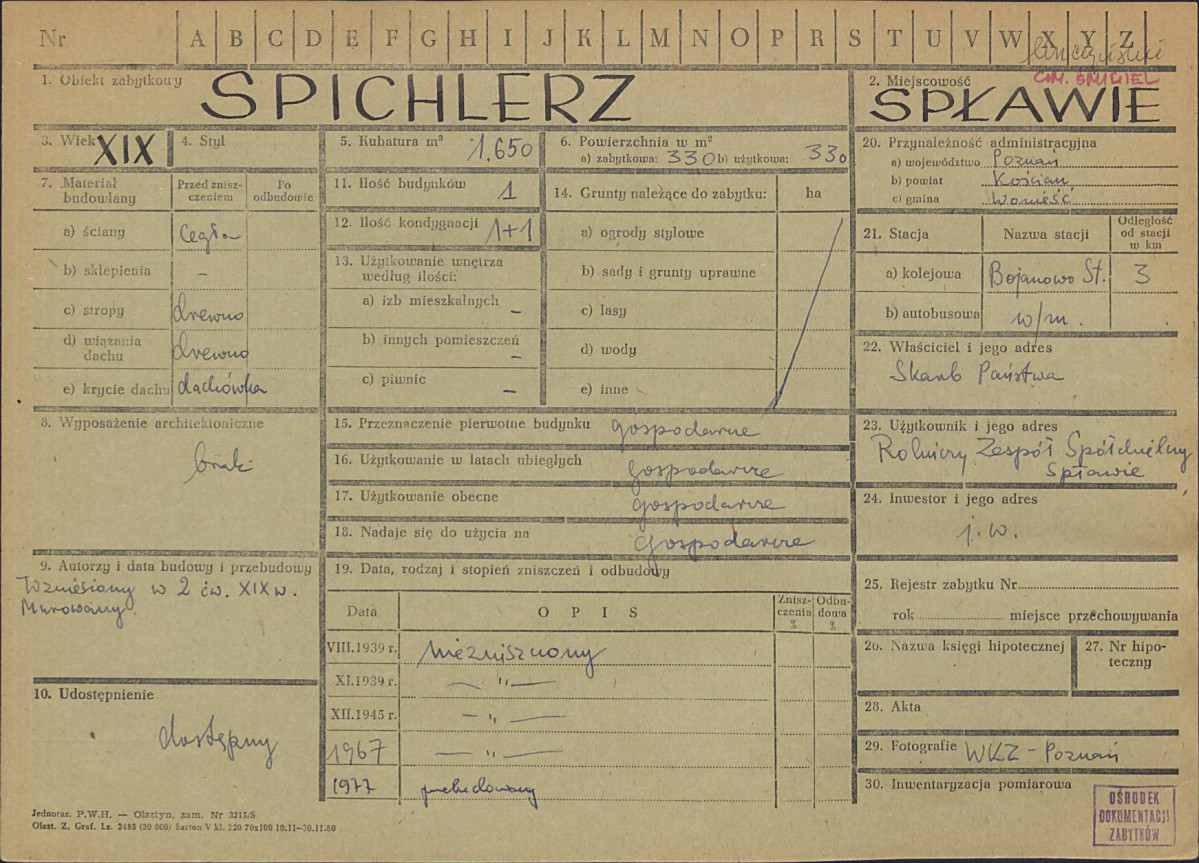 Nr A B C D E F G H I J K L M N O P R S T U V W X Y Z
GM. ŚMIGIEL
1. Obiekt zabytkowy SPICHLERZ
2. Miejscowość SPŁAWIE
3. Wiek XIX
4. Styl
5. Kubatura m³ 1.650
6. Powierzchnia w m²
a) zabytkowa: 330 b) użytkowa: 330
7. Materiał budowlany
Przed zniszczeniem
Po odbudowie
a) ściany cegła
b) sklepienia –
c) stropy drewno
d) wiązania dachu drewno
e) krycie dachu dachówka
8. Wyposażenie architektoniczne
brak
9. Autorzy i data budowy i przebudowy
Wzniesiony w 2 ćw. XIX w.
Murowany.
10. Udostępnienie
dostępny
11. Ilość budynków 1
12. Ilość kondygnacji 1+1
13. Użytkowanie wnętrza
według ilości:
a) izb mieszkalnych –
b) innych pomieszczeń –
c) piwnic –
14. Grunty należące do zabytku: ha
a) ogrody stylowe
b) sady i grunty uprawne
c) lasy
d) wody
e) inne
15. Przeznaczenie pierwotne budynku gospodarcze
16. Użytkowanie w latach ubiegłych gospodarcze
17. Użytkowanie obecne gospodarcze
18. Nadaje się do użycia na gospodarcze
19. Data, rodzaj i stopień zniszczeń i odbudowy
Data OPIS Zniszczenia % Odbudowa %
VIII.1939 r. niezniszczony
XI.1939 r. — " —
XII.1945 r. — " —
1967 — " —
1977 przebudowany
20. Przynależność administracyjna
a) województwo Poznań
b) powiat Kościan
c) gmina Wonieść
21. Stacja Nazwa stacji Odległość od stacji w km
a) kolejowa Bojanowo St. 3
b) autobusowa w/m.
22. Właściciel i jego adres
Skarb Państwa
23. Użytkownik i jego adres
Rolniczy Zespół Spółdzielny
Spławie
24. Inwestor i jego adres
j.w.
25. Rejestr zabytku Nr
rok miejsce przechowywania
26. Nazwa księgi hipotecznej
27. Nr hipoteczny
28. Akta
29. Fotografie WKZ – Poznań
30. Inwentaryzacja pomiarowa
OŚRODEK
DOKUMENTACJI
ZABYTKÓW
Jednoraz. P.W.H. — Olsztyn, zam. Nr 3215/S
Olszt. Z. Graf. Lz. 2485 (30 000) karton V kl. 220 70x100 10.11—30.11.60